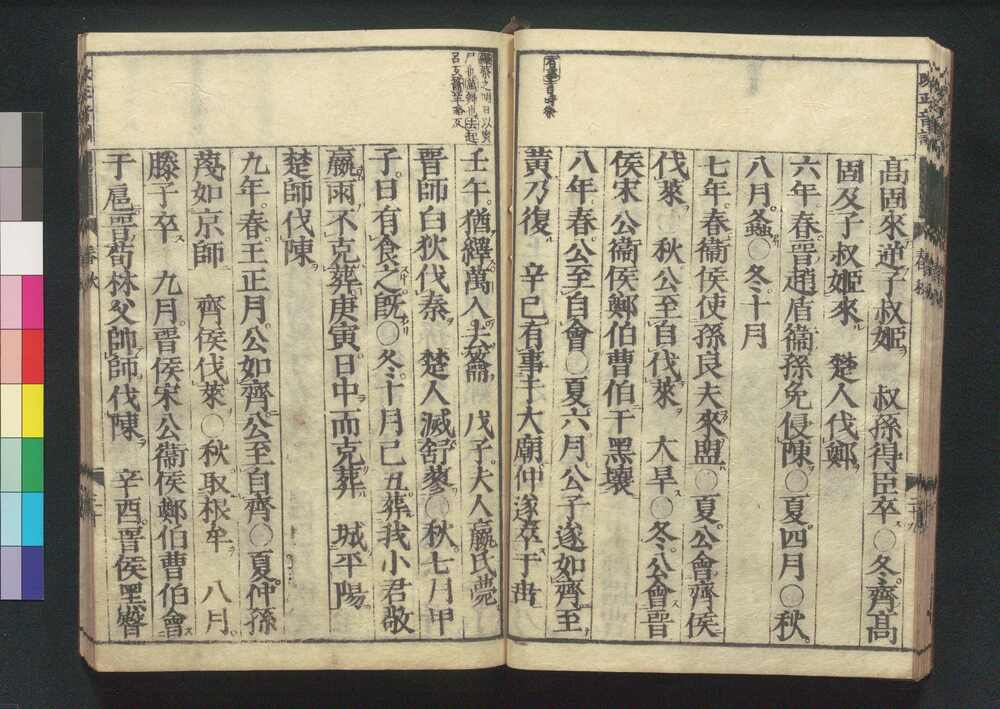 高固來逆子叔姬 叔孫得臣卒 〇冬齊高
固及子叔姬來 楚人伐鄭
六年春晉趙盾衞孫免侵陳〇夏四月〇秋
八月螽〇冬十月
七年春衞侯使孫良夫來盟〇夏公會齊侯
伐萊 秋公至自伐萊 大旱〇冬公會晉
侯宋公衞侯鄭伯曹伯于黑壤
八年春公至自會〇夏六月公子遂如齊至
黃乃復 辛巳有事于大廟仲遂卒于垂
壬午猶繹萬入去籥 戊子夫人嬴氏薨
晉師白狄伐秦 楚人滅舒蓼〇秋七月甲
子日有食之旣〇冬十月己丑葬我小君敬
嬴雨不克葬庚寅日中而克葬 城平陽
楚師伐陳
九年春王正月公如齊公至自齊〇夏仲孫
蔑如京師 齊侯伐萊〇秋取根牟 八月
滕子卒 九月晉侯宋公衞侯鄭伯曹伯會
于扈晉荀林父帥師伐陳 辛酉晉侯黑臀